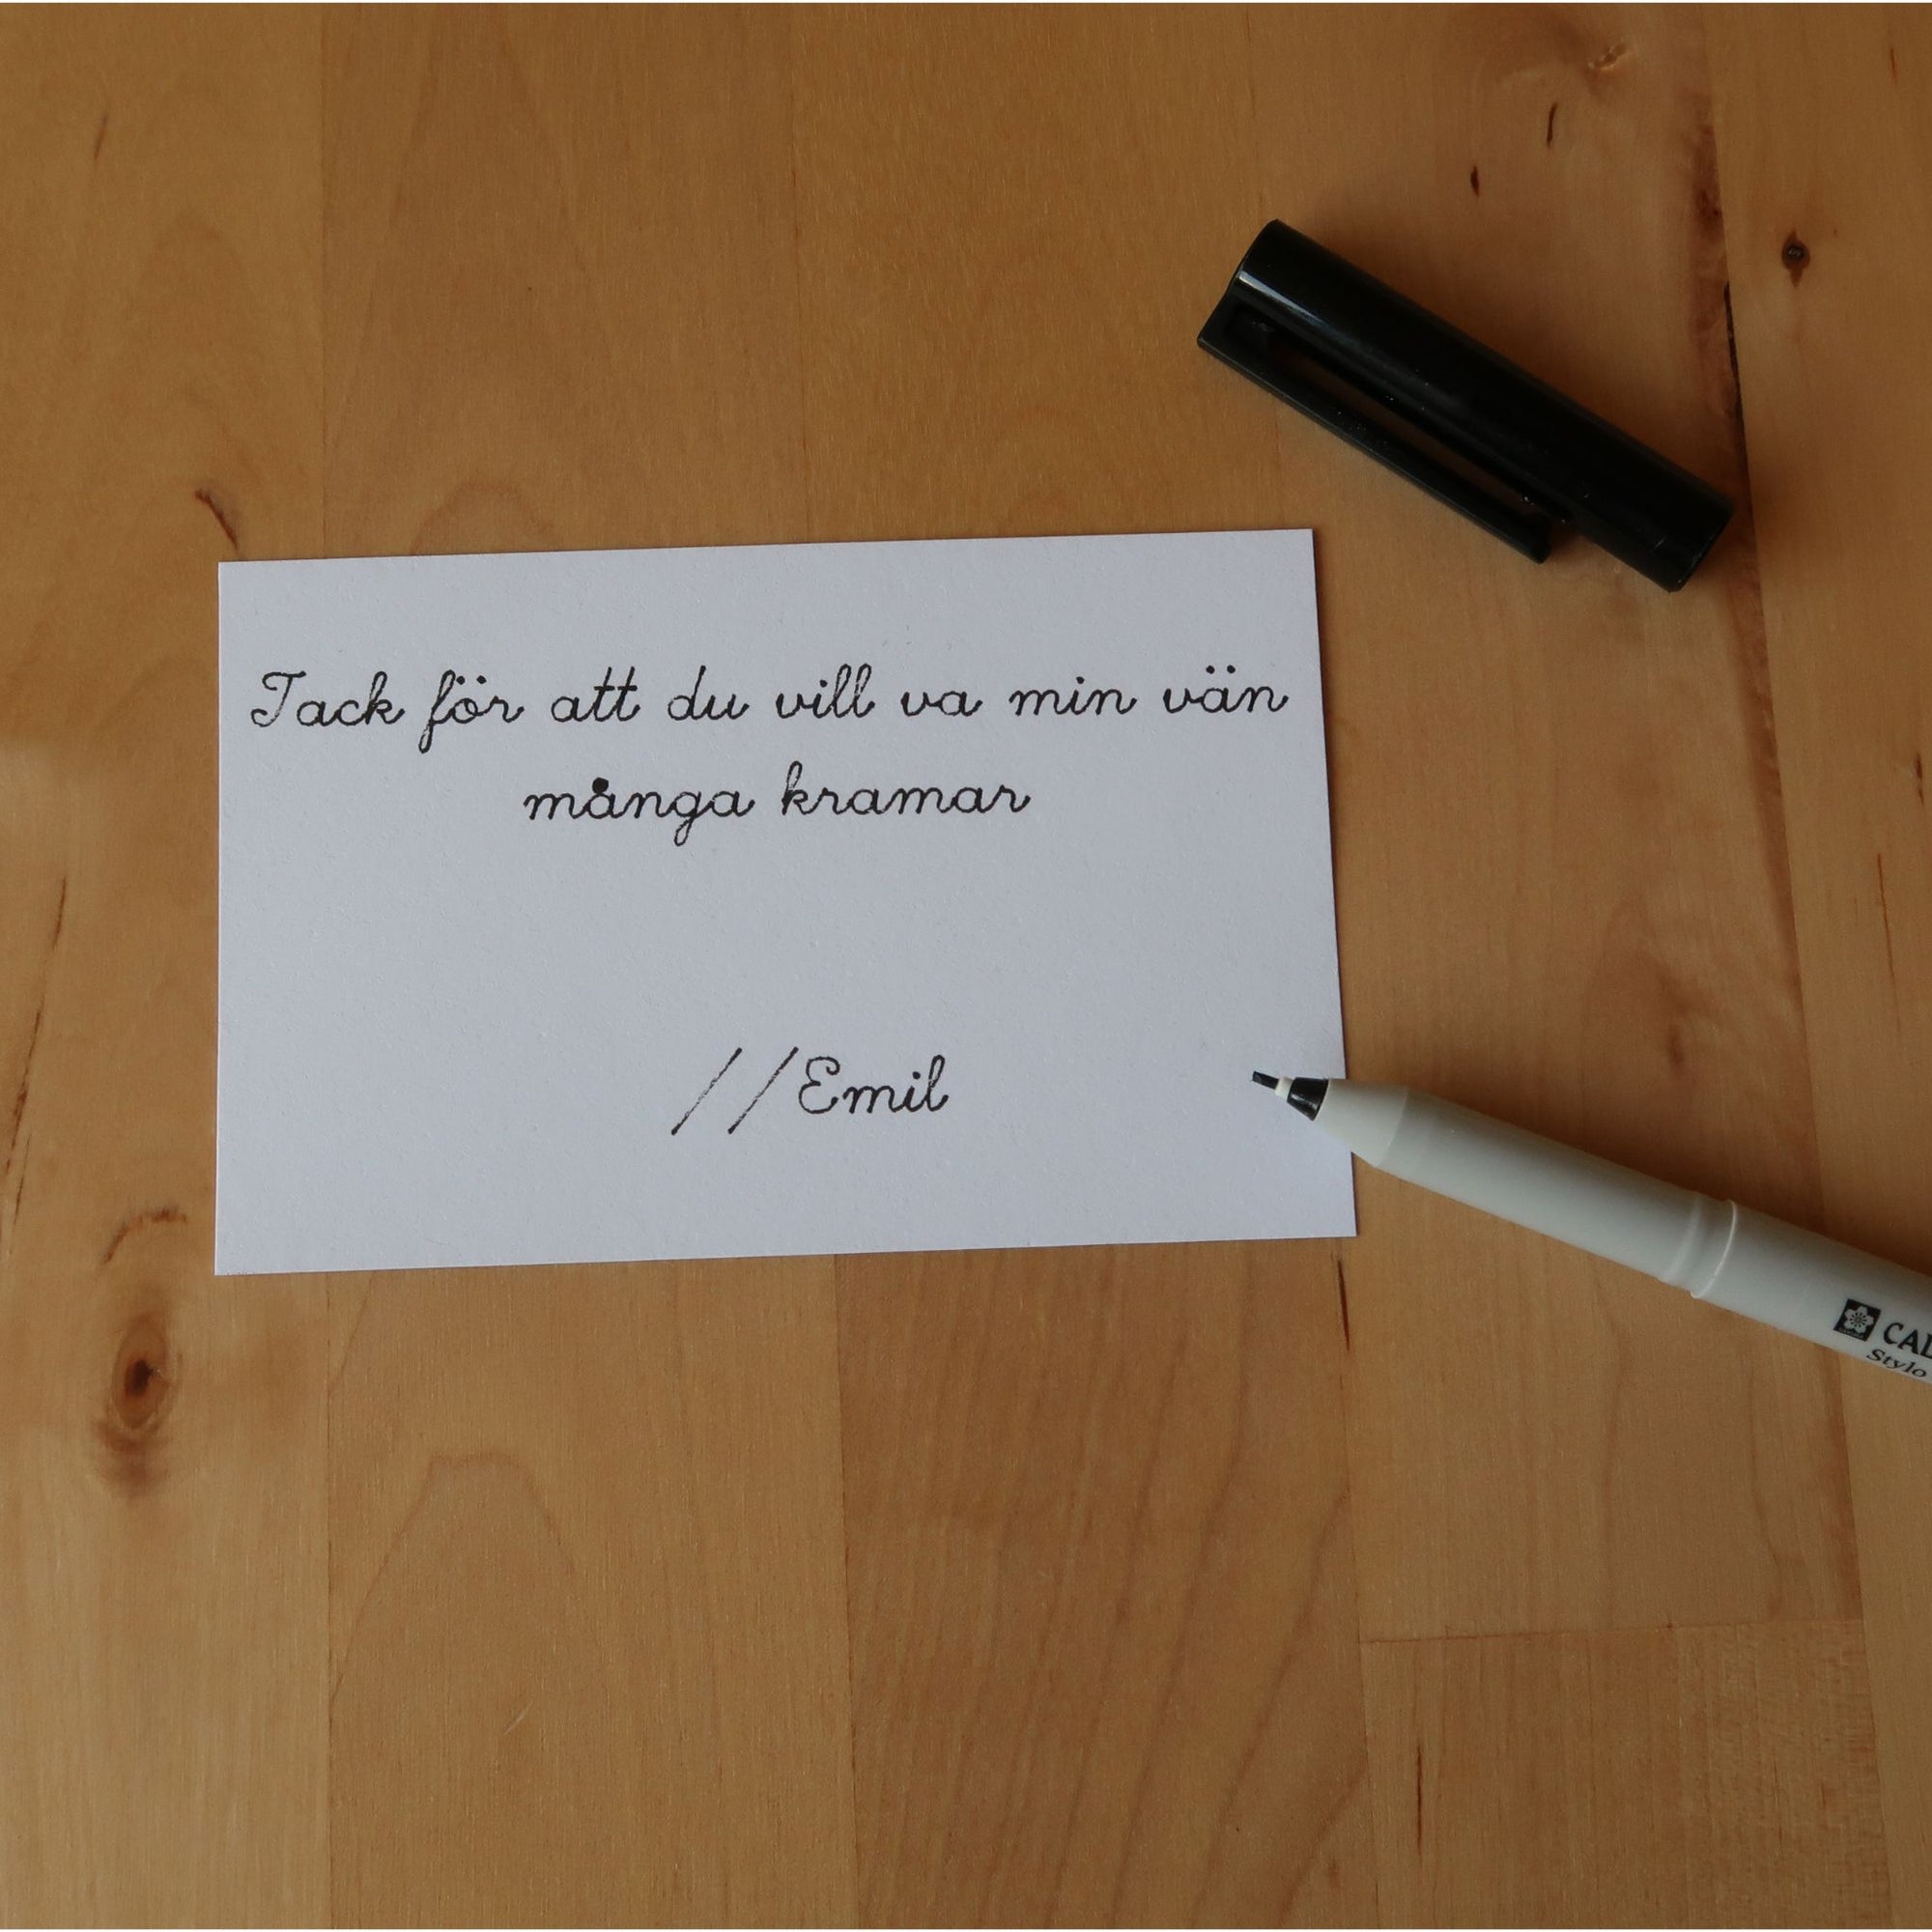 Tack för att du vill va min vän
många kramar
//Emil
Stylo